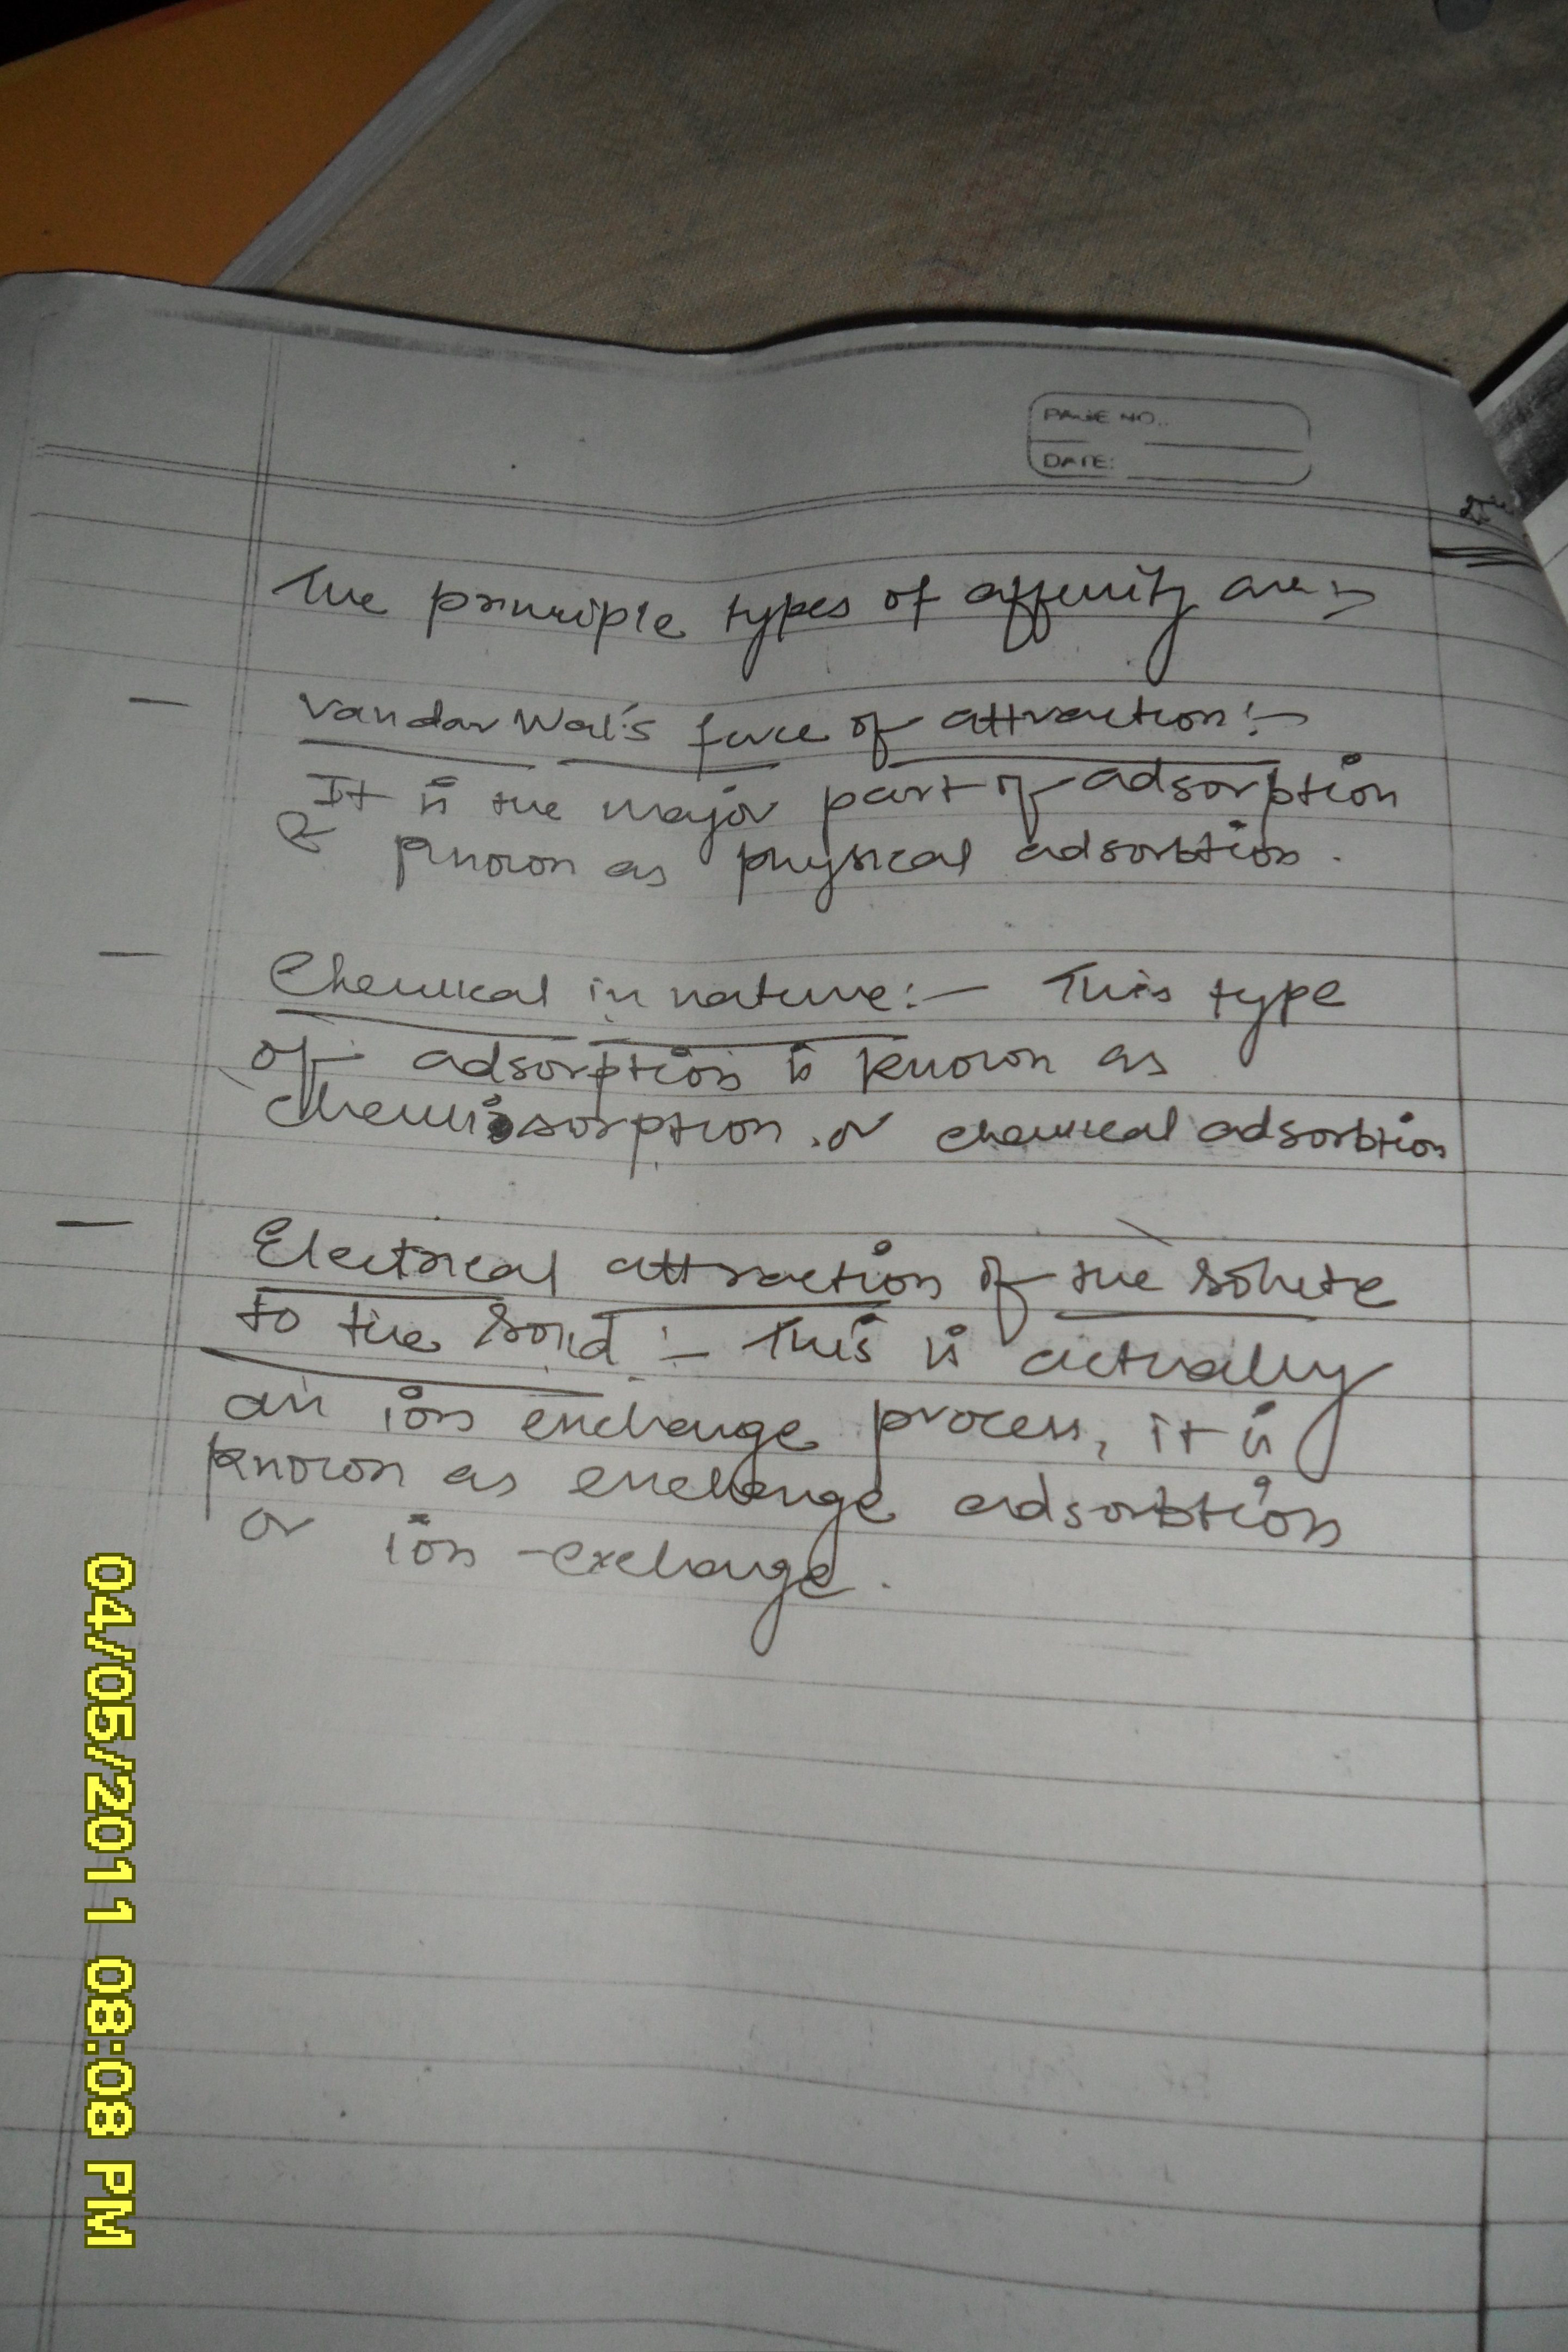 PAGE NO.:
DATE:
The principle types of affinity are :-
— Vandar Wal's force of attraction :-
It is the major part of adsorption
& known as physical adsorbtion.
— Chemical in nature :- This type
of adsorption is known as
chemisorption or chemical adsorbtion
— Electrical attraction of the solute
to the solid :- This is actually
an ion exchange process, it is
known as exchange adsorbtion
or ion-exchange.
04/05/2011 08:08 PM